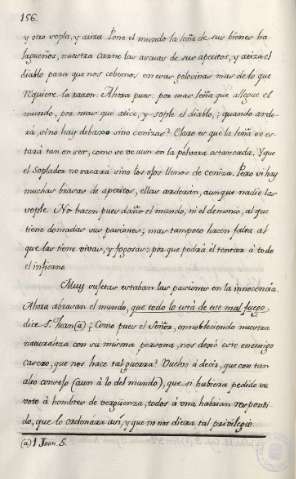 156.
y otro sopla, y atiza. Pone el mundo la leña de sus bienes ha
lagueños, nuestra carne las ascuas de sus apetitos, y atiza el
diablo para que nos cebemos en esas golosinas mas de lo que
requiere la razon. Ahora pues: por mas leña que allegue el
mundo, por mas que atice, y sople el diablo, ¿quando arde
rá, si no hay debaxo sino ceniza? Claro es que la leña se es
tará tan en ser, como se ve aun en la pólvora Y que
el Soplador no sacará sino los ojos llenos de ceniza. Pero si hay
muchas brasas de apetitos, ellas arderán, aunque nadie las
sople. No hacen pues daño el mundo, ni el demonio, al que
tiene domadas sus pasiones; mas tampoco hacen falta al
que las tiene vivas, y fogosas: porque podrá él tentar á todo
el infierno.
Muy sujetas estaban las pasiones en la inocencia.
Ahora abrasan el mundo, que todo lo está de ese mal fuego,
dice S. Juan (a); Como pues el Señor, ennobleciendo nuestra
naturaleza con su misma persona, nos dexó este enemigo
casero, que nos hace tal guerra? Vuelvo á decir, que con tan
alto consejo (aun á lo del mundo), que si hubiera pedido su
voto á hombres de vergüenza, todos á una habian respondi
do, que lo ordenara así, y que no nos diera tal privilegio.
(a) 1 Joan. 5.